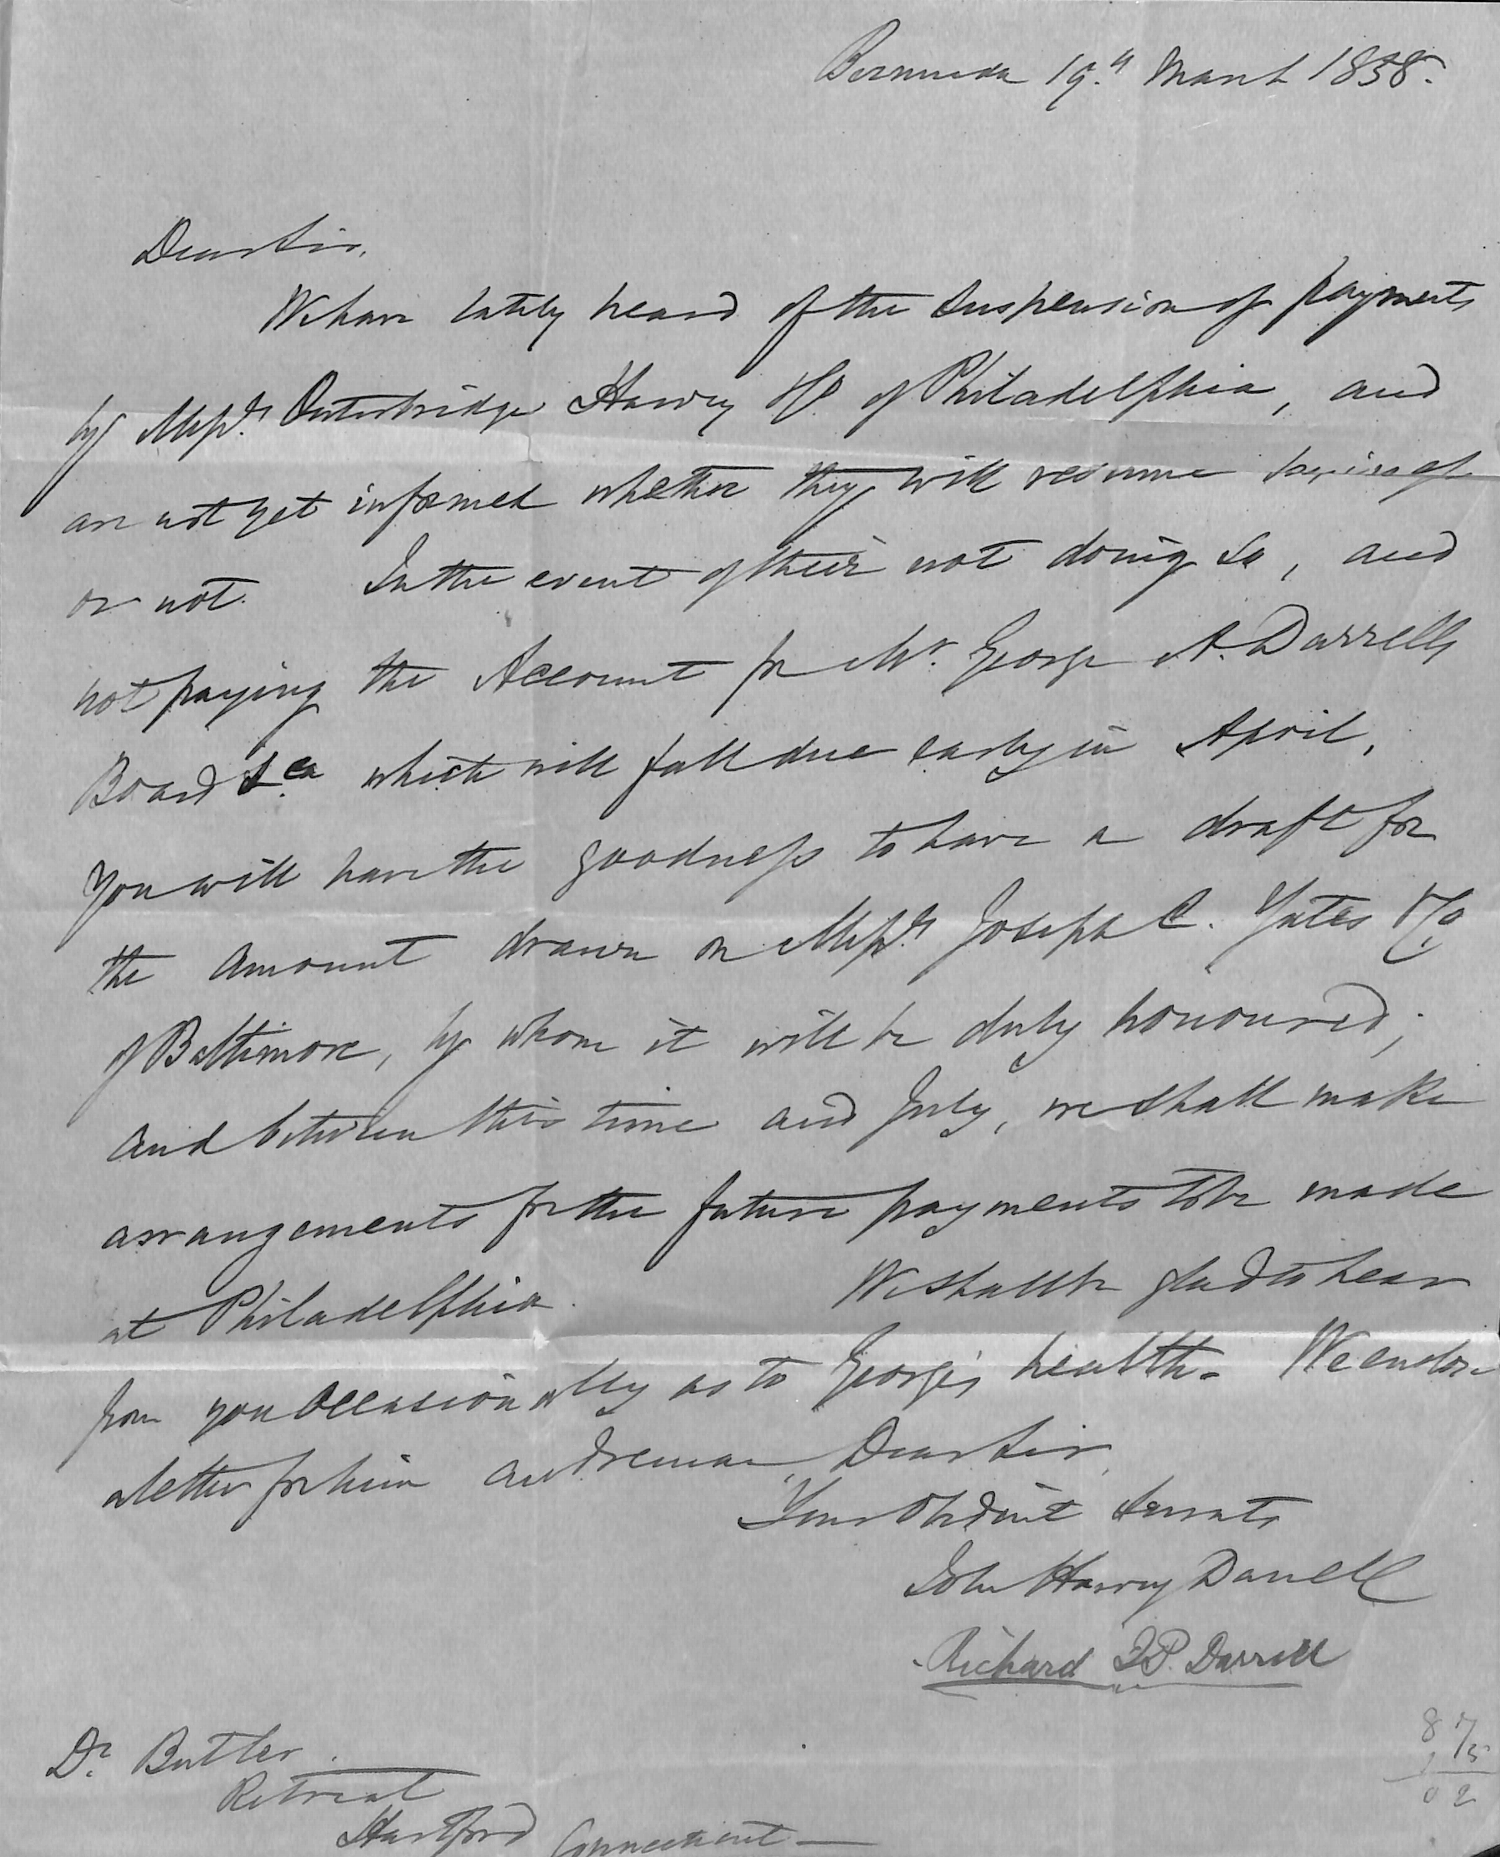 Bermuda 19th March 1858.
Dear Sir,
We have lately heard of the suspension of payments
by Messrs Outerbridge Harvey & Co. of Philadelphia, and
are not yet informed whether they will resume business
or not. In the event of their not doing so, and
not paying the Account for Mr. George A. Darrells
Board &ca which will fall due early in April,
you will have the goodness to have a draft for
the amount drawn on Messrs Joseph C. Yates & Co
of Baltimore, by whom it will be duly honoured;
and between this time and July, we shall make
arrangements for the future payments to be made
at Philadelphia. We shall be glad to hear
from you occasionally as to George's health. We enclose
a letter for him and remain, Dear Sir,
Your Obedient Servants
John Harvey Darrell
Richard D. Darrell
Dr. Butler.
Retreat
Hartford Connecticut